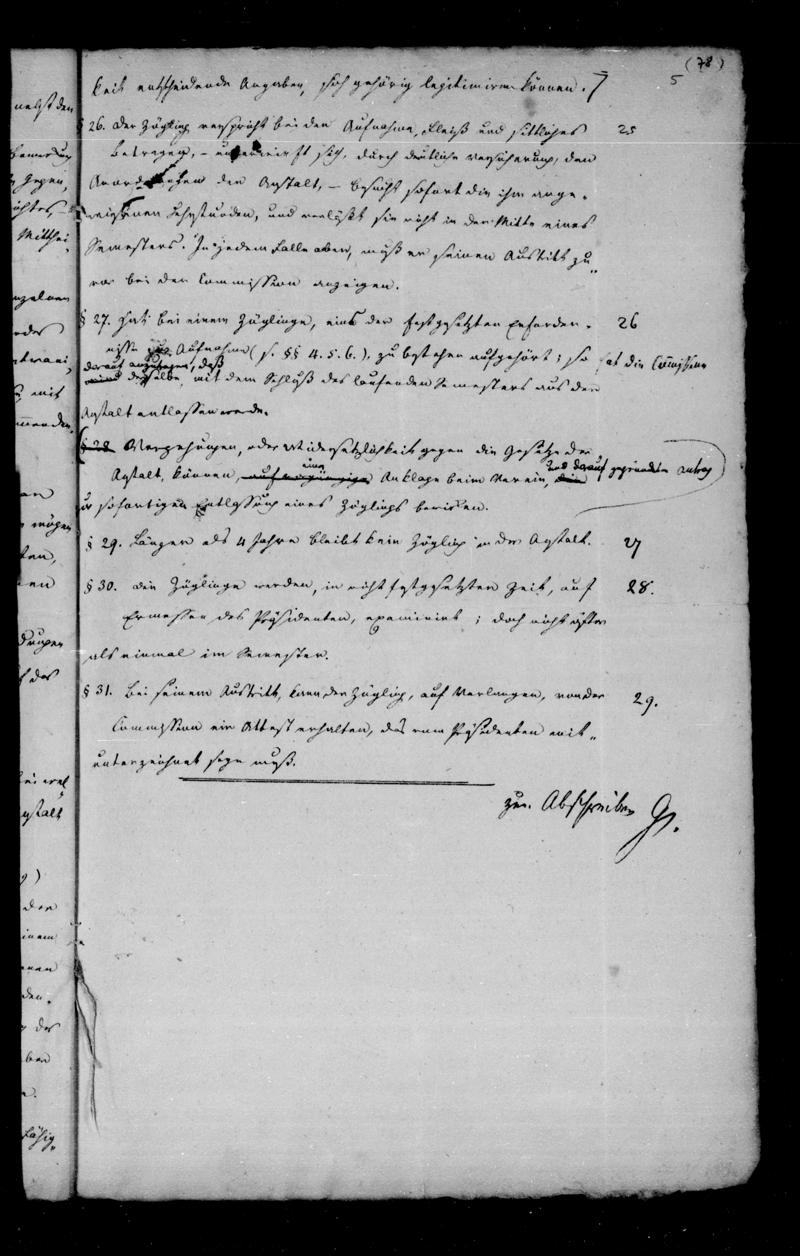 (78)
5
keit entscheidende Angaben, sich gehörig legitimiren können.
§ 26. Der Zögling verspricht bei der Aufnahme, Fleiß und sittliches 25
Betragen, – unterwirft sich, durch deutliche Versicherung, den
Anordnungen der Anstalt, – besucht sofort die ihm ange-
wiesenen Lehrstunden, und verläßt sie nicht in der Mitte eines
Semesters. In jedem Falle aber, muß er seinen Austritt zu-
vor bei der Commission anzeigen.
§ 27. Hat bei einem Zöglinge, eins der festgesetzten Erforder- 26
nisse zur Aufnahme (s. §§ 4. 5. 6.), zu bestehen aufgehört; so hat die Commission
darauf anzutragen, daß
derselbe, mit dem Schluß des laufenden Semesters aus der
Anstalt entlassen werde.
§ 28 Vergehungen, oder Widersetzlichkeit gegen die Gesetze der
Anstalt, können, eine Anklage beim Verein, und darauf gegründeten Antrag
zur sofortigen Entlassung eines Zöglings bewirken.
§ 29. Länger als 4 Jahre bleibt kein Zögling in der Anstalt. 27
§ 30. Die Zöglinge werden, in nicht festgesetzter Zeit, auf 28.
Ermessen des Präsidenten, examinirt; doch nicht öfter
als einmal im Semester.
§ 31. Bei seinem Austritt, kann der Zögling, auf Verlangen, von der 29.
Commission ein Attest erhalten, das vom Präsidenten mit-
unterzeichnet seyn muß.
zum Abschreiben